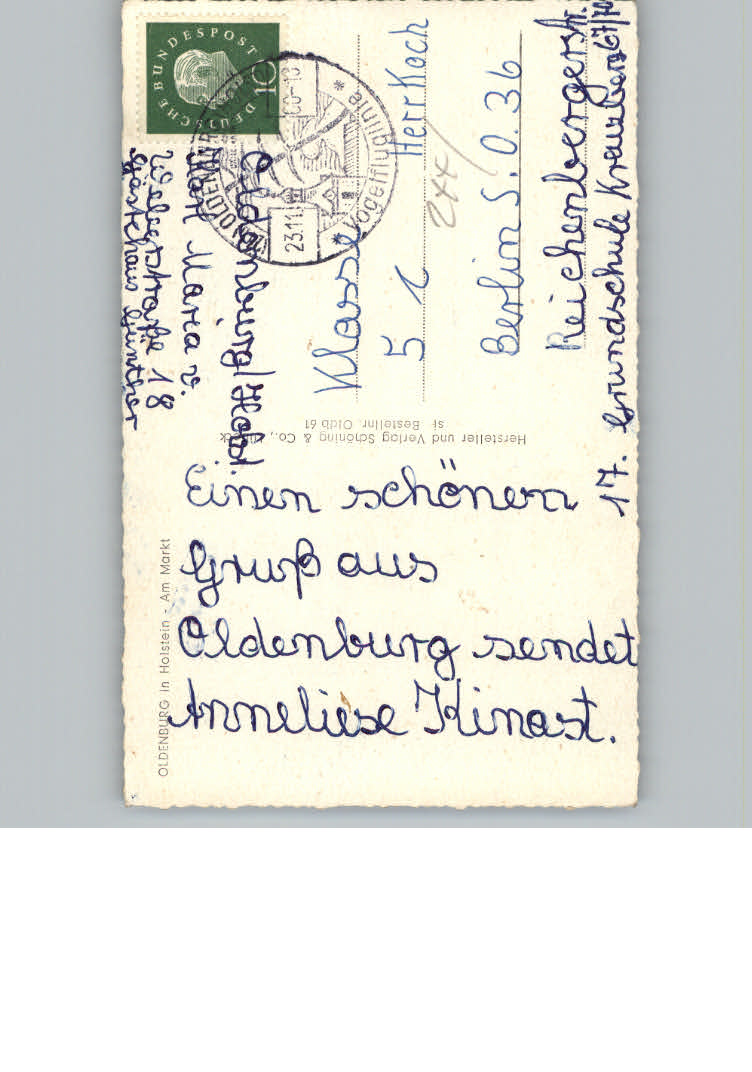 Einen schönen
Gruß aus
Oldenburg sendet
Anneliese Kinast.
OLDENBURG in Holstein - Am Markt
Hersteller und Verlag Schöning & Co., Lübeck
si- Bestellnr. Oldb 61
DEUTSCHE BUNDESPOST
10
23.11.
* Vogelfluglinie *
Oldenburg/Holst.
Maria v.
Weberstraße 18
Gästehaus Günther
Klasse
5 c
Herr Koch
2xx
Berlin S.O. 36
Reichenbergerstr.
17. Grundschule Kreuzberg 67/70